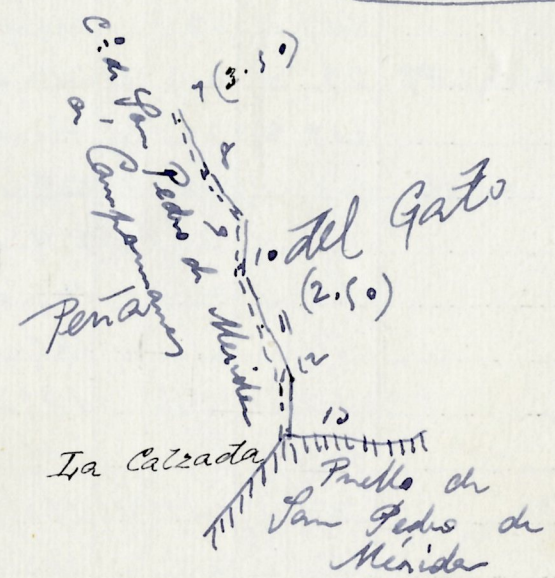 C.º de San Pedro de Mérida
a Campomanes
7 (3.50)
8
9
10
Peña del Gato
(2.50)
11
12
13
La Calzada
Pueblo de
San Pedro de
Mérida